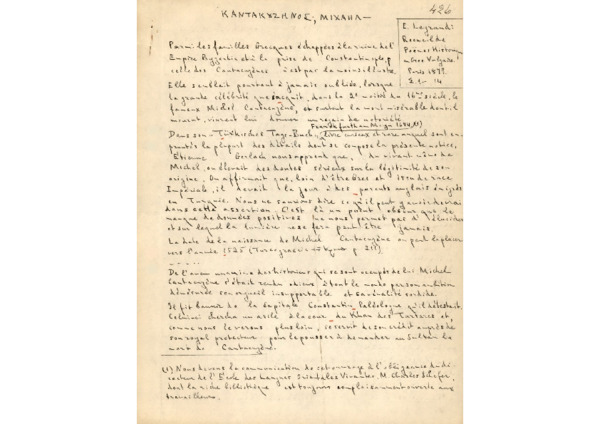 426
ΚΑΝΤΑΚΥΖΗΝΟΣ, ΜΙΧΑΗΛ —
E. Legrand:
Recueil de
Poèmes Historiques
Paris 1877
Σ. 1 - 14
Parmi les familles Grecques échappées à la ruine de l'
Empire Byzantin et à la prise de Constantinople,
celle des Cantacuzènes n'est pas la moins illustre.
Elle semblait pourtant à jamais oubliée, lorsque
la grande célébrité que acquit, dans la 2e moitié du 16me siècle, le
fameux Michel Cantacuzène, et surtout la mort misérable dont il
mourut, vinrent lui donner un regain de notoriété
Dans son Türkisches Tage-Buch, livre curieux et rare auquel sont em-
pruntés la plupart des détails dont se compose la présente notice,
Étienne Gerlach nous apprend que, du vivant même de
Michel, on élevait des doutes sérieux sur la légitimité de son
origine. On affirmait que, loin d'être Grec et issu de race
Impériale, il devait le jour à des parents anglais émigrés
en Turquie. Nous ne saurions dire ce qu'il peut y avoir de vrai
dans cette assertion. C'est là un point obscur que le
manque de données positives ne nous permet pas d'élucider
et sur lequel la lumière ne se fera peut être jamais.
La date de la naissance de Michel Cantacuzène on peut la placer
vers l'année 1525
De l'aveu unanime des historiens qui se sont occupés de lui Michel
Cantacuzène s'était rendu odieux à tout le monde par son ambition
démesurée son orgueil insupportable et sa vénalité sordide.
Il fit bannir de la capitale Constantin Paléologue qu'il détestait.
Celui-ci chercha un asile à la cour du Khan des Tartares et,
comme nous le verrons plus loin, se servit de son crédit auprès de
son royal protecteur pour le pousser à demander au Sultan la
mort de Cantacuzène.
(1) Nous devons la communication de cet ouvrage à l'obligeance du di-
recteur de l'École des langues Orientales Vivantes, M. Charles Schefer,
dont la riche bibliothèque est toujours complaisamment ouverte aux
travailleurs.